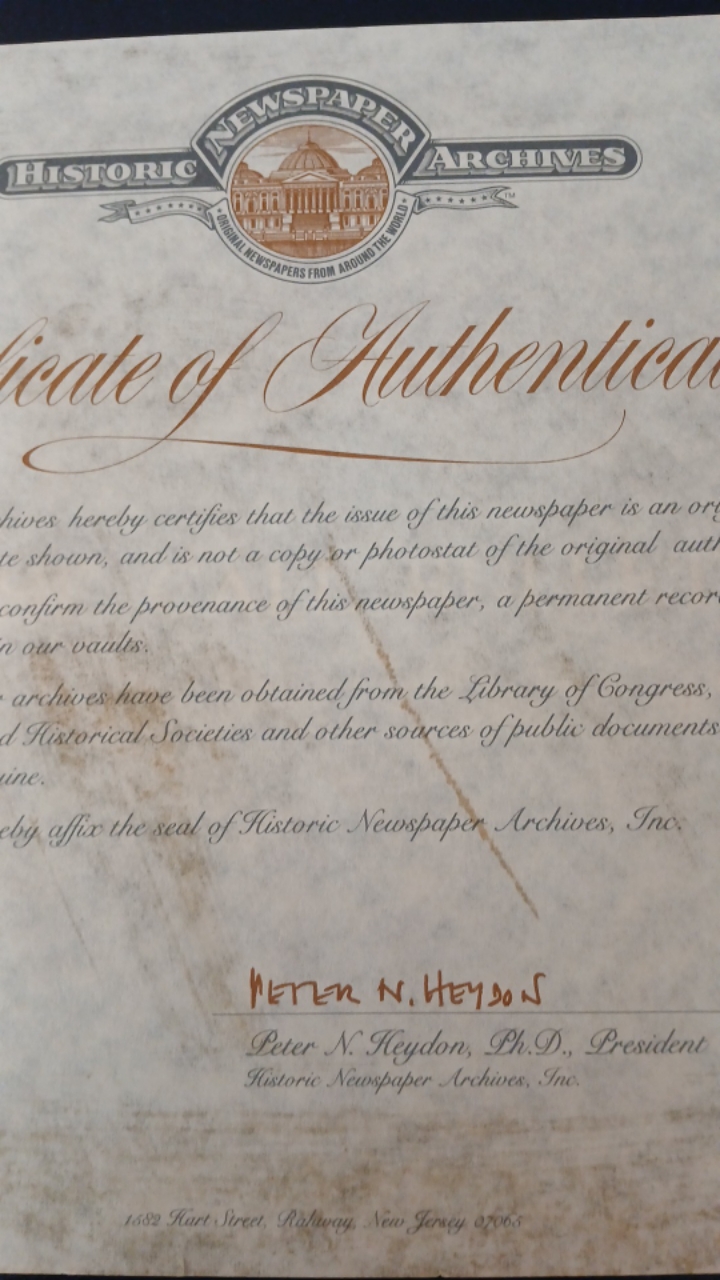 NEWSPAPER
HISTORIC ARCHIVES
TM
ORIGINAL NEWSPAPERS FROM AROUND THE WORLD
icate of Authentica
hives hereby certifies that the issue of this newspaper is an ori
te shown, and is not a copy or photostat of the original auth
confirm the provenance of this newspaper, a permanent recor
n our vaults.
r archives have been obtained from the Library of Congress,
d Historical Societies and other sources of public documents
uine.
eby affix the seal of Historic Newspaper Archives, Inc.
PETER N. HEYDON
Peter N. Heydon, Ph.D., President
Historic Newspaper Archives, Inc.
1582 Hart Street, Rahway, New Jersey 07065